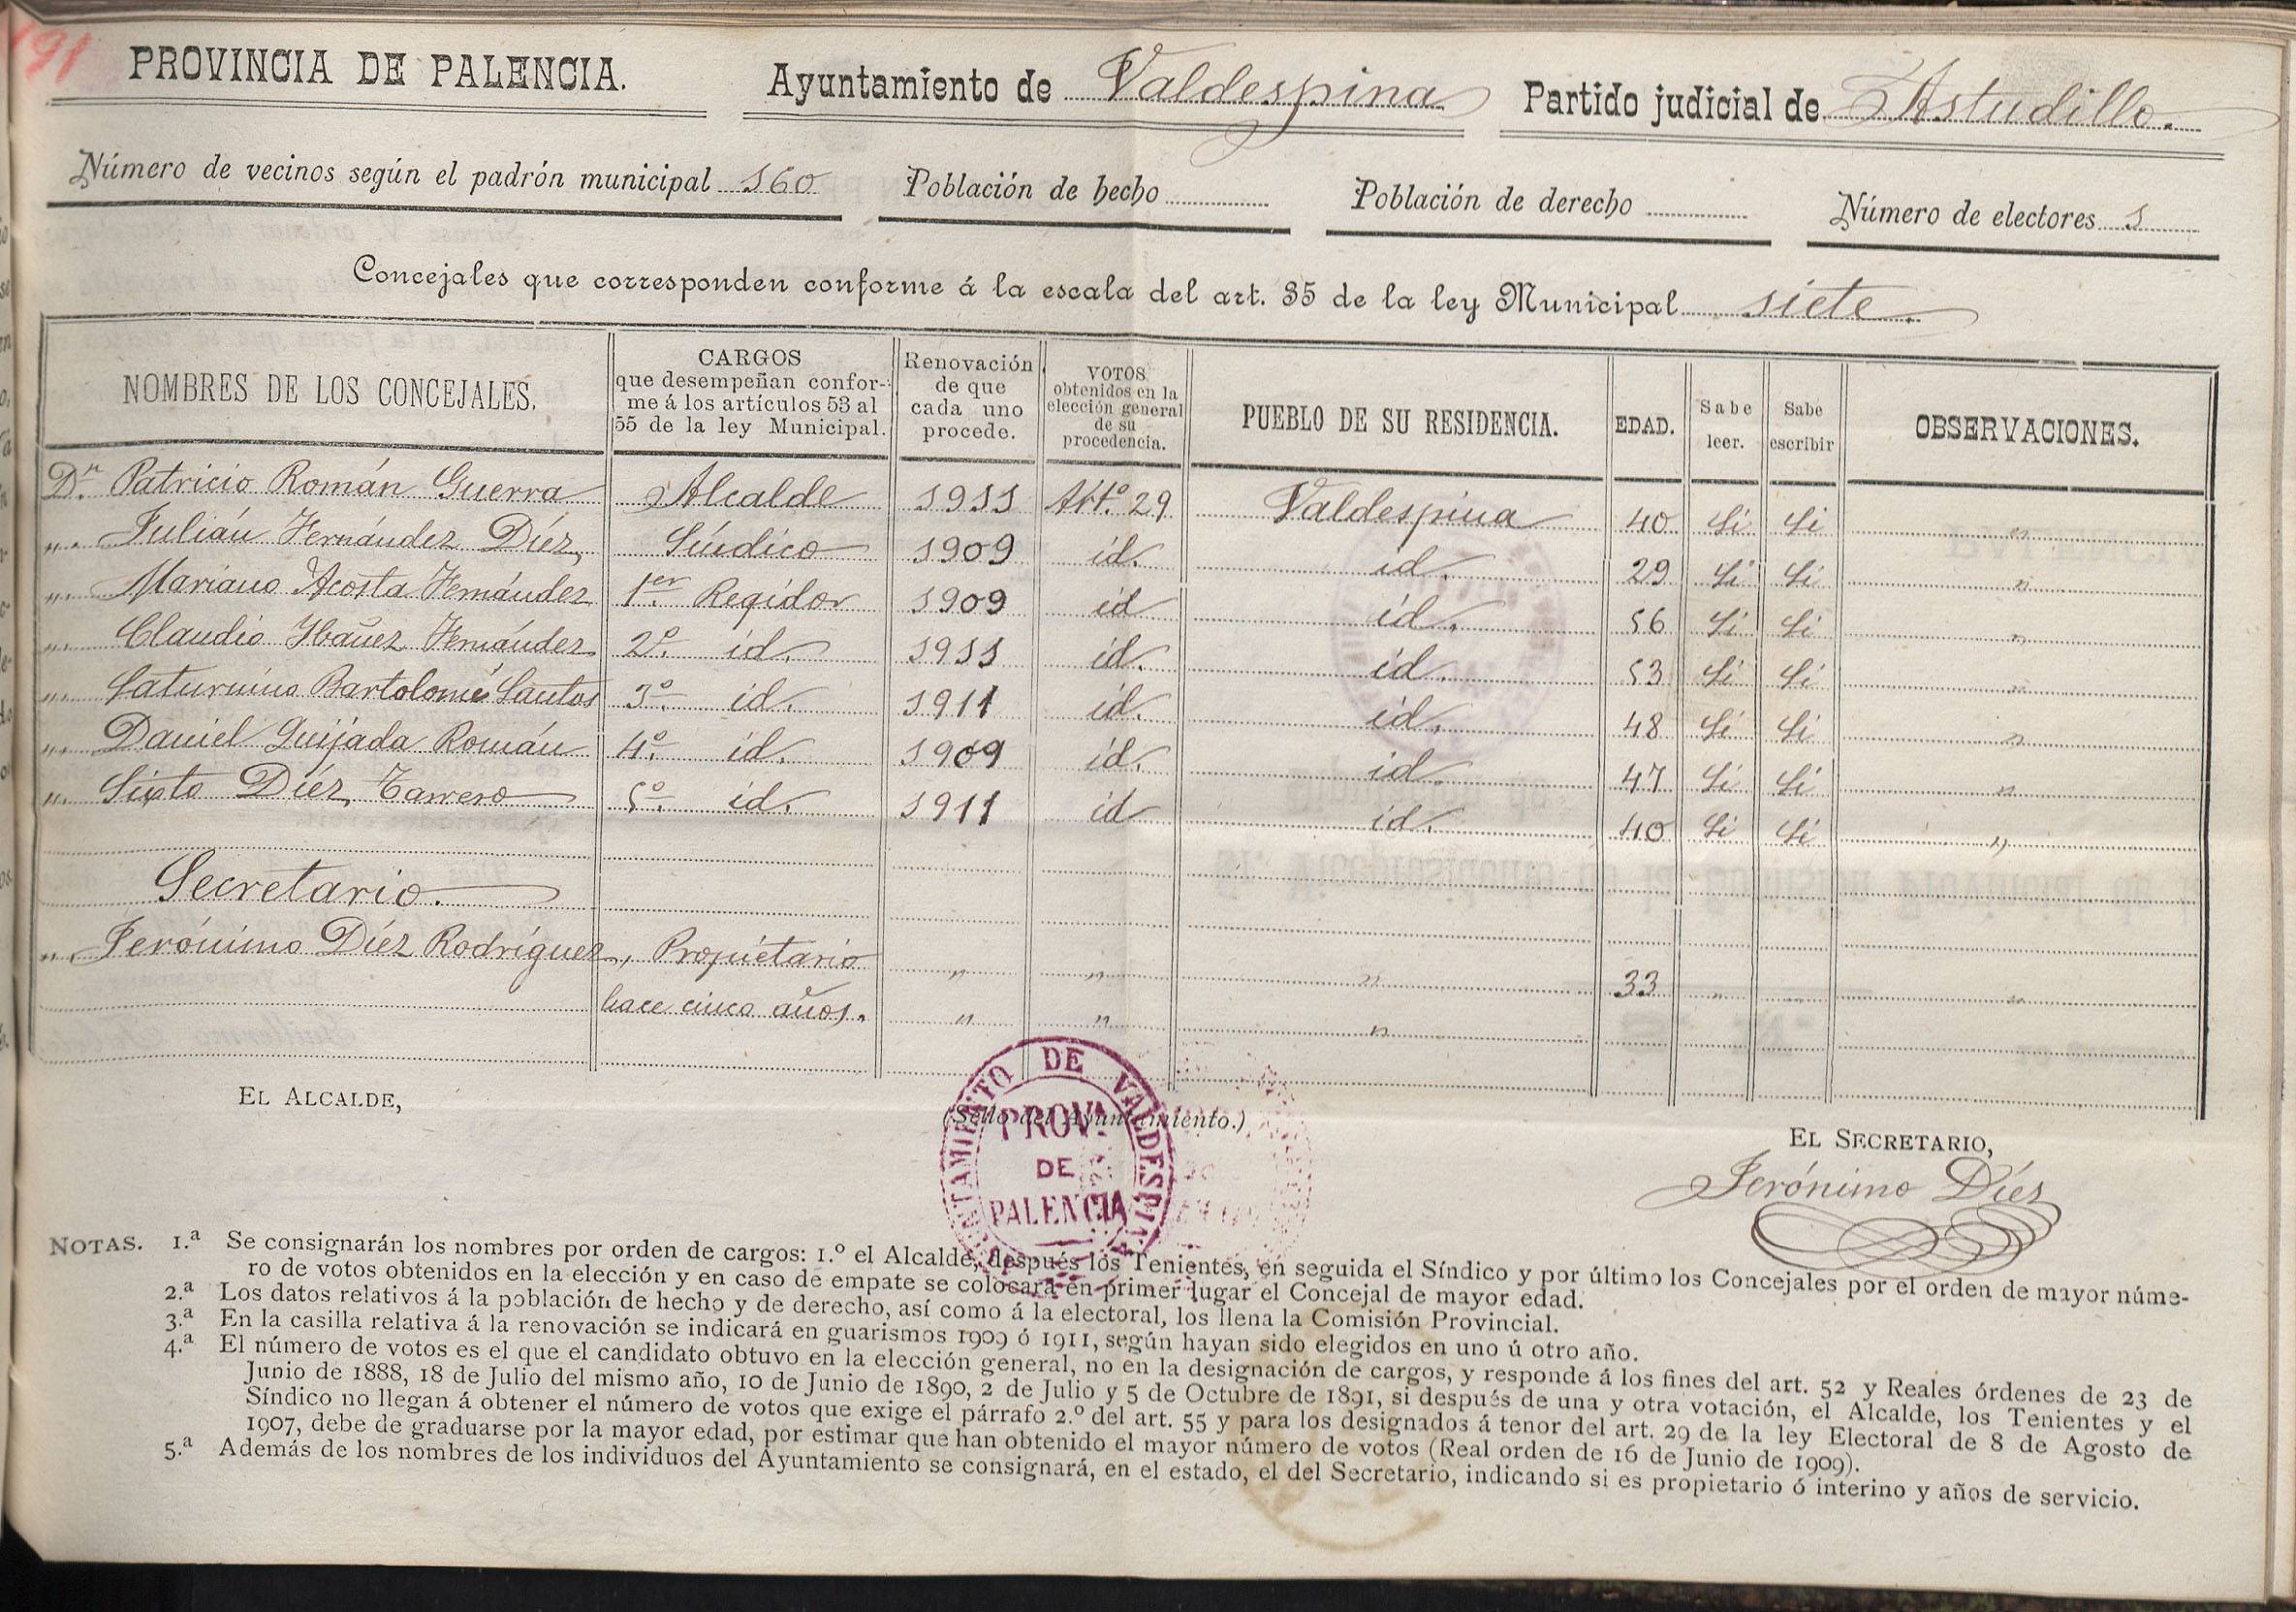 191
PROVINCIA DE PALENCIA. Ayuntamiento de Valdespina Partido judicial de Astudillo.
Número de vecinos según el padrón municipal 160 Población de hecho Población de derecho Número de electores 1
Concejales que corresponden conforme á la escala del art. 35 de la ley Municipal siete.
NOMBRES DE LOS CONCEJALES. CARGOS que desempeñan confor- me á los artículos 53 al 55 de la ley Municipal. Renovación de que cada uno procede. VOTOS obtenidos en la elección general de su procedencia. PUEBLO DE SU RESIDENCIA. EDAD. Sabe leer. Sabe escribir OBSERVACIONES.
Dn. Patricio Román Guerra Alcalde 1911 Artº. 29 Valdespina 40 Si Si "
". Julián Fernández Díez, Síndico 1909 id. id. 29 Si Si "
". Mariano Acosta Fernández 1er. Regidor 1909 id id. 56 Si Si "
". Claudio Ibañez Fernández 2º. id. 1911 id. id. 53 Si Si "
". Saturnino Bartolomé Santos 3º. id. 1911 id. id. 48 Si Si "
". Daniel Quijada Román 4º. id. 1909 id. id. 47 Si Si "
". Sixto Díez Tarrero 5º. id. 1911 id id. 40 Si Si "
Secretario.
". Jerónimo Díez Rodríguez, Propietario " " " 33 " "
hace cinco años. " " "
EL ALCALDE,
(Sello del Ayuntamiento.)
AYUNTAMIENTO DE VALDESPINA
PROVA.
DE
PALENCIA
EL SECRETARIO,
Jerónimo Díez
NOTAS. 1.ª Se consignarán los nombres por orden de cargos: 1.º el Alcalde, después los Tenientes, en seguida el Síndico y por último los Concejales por el orden de mayor núme-
ro de votos obtenidos en la elección y en caso de empate se colocará en primer lugar el Concejal de mayor edad.
2.ª Los datos relativos á la población de hecho y de derecho, así como á la electoral, los llena la Comisión Provincial.
3.ª En la casilla relativa á la renovación se indicará en guarismos 1909 ó 1911, según hayan sido elegidos en uno ú otro año.
4.ª El número de votos es el que el candidato obtuvo en la elección general, no en la designación de cargos, y responde á los fines del art. 52 y Reales órdenes de 23 de
Junio de 1888, 18 de Julio del mismo año, 10 de Junio de 1890, 2 de Julio y 5 de Octubre de 1891, si después de una y otra votación, el Alcalde, los Tenientes y el
Síndico no llegan á obtener el número de votos que exige el párrafo 2.º del art. 55 y para los designados á tenor del art. 29 de la ley Electoral de 8 de Agosto de
1907, debe de graduarse por la mayor edad, por estimar que han obtenido el mayor número de votos (Real orden de 16 de Junio de 1909).
5.ª Además de los nombres de los individuos del Ayuntamiento se consignará, en el estado, el del Secretario, indicando si es propietario ó interino y años de servicio.